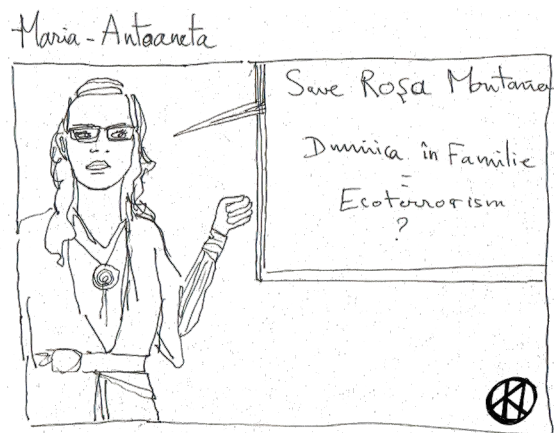 Maria-Antoaneta
Save Roşa Montana
Duminica în Familie
=
Ecoterrorism
?